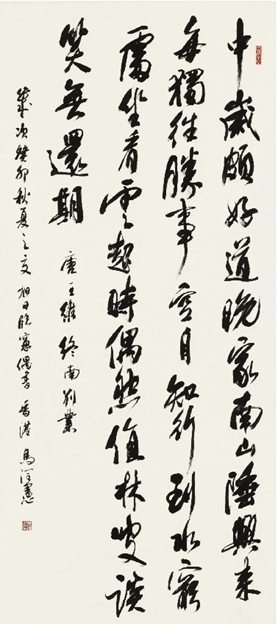 中歲頗好道晚家南山陲興來
每獨往勝事空自知行到水窮
處坐看雲起時偶然值林叟談
笑無還期 唐王維終南別業
歲次癸卯秋夏之交旭日臨窗偶書 香港 馬